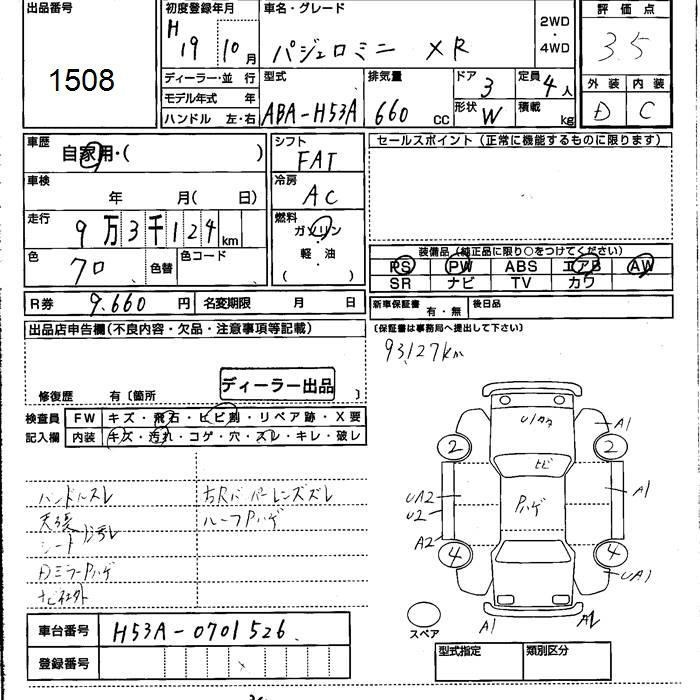 出品番号
1508
初度登録年月
H 19 10月
車名・グレード
パジェロミニ XR
2WD
・
4WD
評価点
3.5
外装 内装
D C
ディーラー・並 行
モデル年式 年
ハンドル 左・右
型式
ABA-H53A
排気量
660 cc
ドア 3
形状 W
定員 4人
積載 kg
車歴
自家用・( )
車検
年 月( 日)
走行
9万3千124km
色
70
色替
色コード
シフト
FAT
冷房
AC
燃料
ガソリン
軽・油
( )
セールスポイント(正常に機能するものに限ります)
装備品(純正品に限り○をつけてください)
PS PW ABS エアB AW
SR ナビ TV カワ
R券 9.660円 名変期限 月 日
新車保証書 有・無 後日品
(保証書は事務局へ提出して下さい)
93127km
出品店申告欄(不良内容・欠品・注意事項等記載)
修復歴 有〔箇所 〕
ディーラー出品
検査員
記入欄
FW キズ・飛石・ヒビ割・リペア跡・X要
内装 キズ・汚れ・コゲ・穴・スレ・キレ・破レ
ハンドルスレ
天張
シート
DミラーPハゲ
ルーフPハゲ
車台番号 H53A-0701526
登録番号
U1カタ
A1
2
2
ヒビ
Pハゲ
UA2
U2
A1
A2
4
4
UA1
スペア
A1
A2
型式指定 類別区分